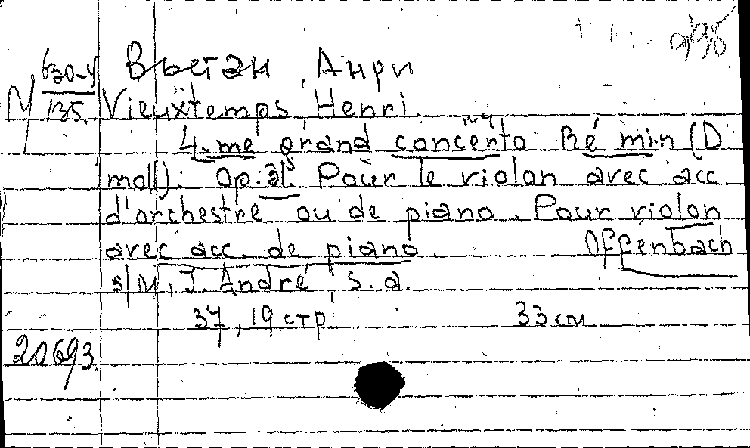 Вьетан, Анри
N 630-4/135 Vieuxtemps Henri.
4-me grand concerto Ré min (D
moll). Op. 31. Pour le violon avec acc
d'orchestre ou de piano. Pour violon
avec acc. de piano. Offenbach
s/M, J. André, s.a.
37, 19 стр 33 см
20693